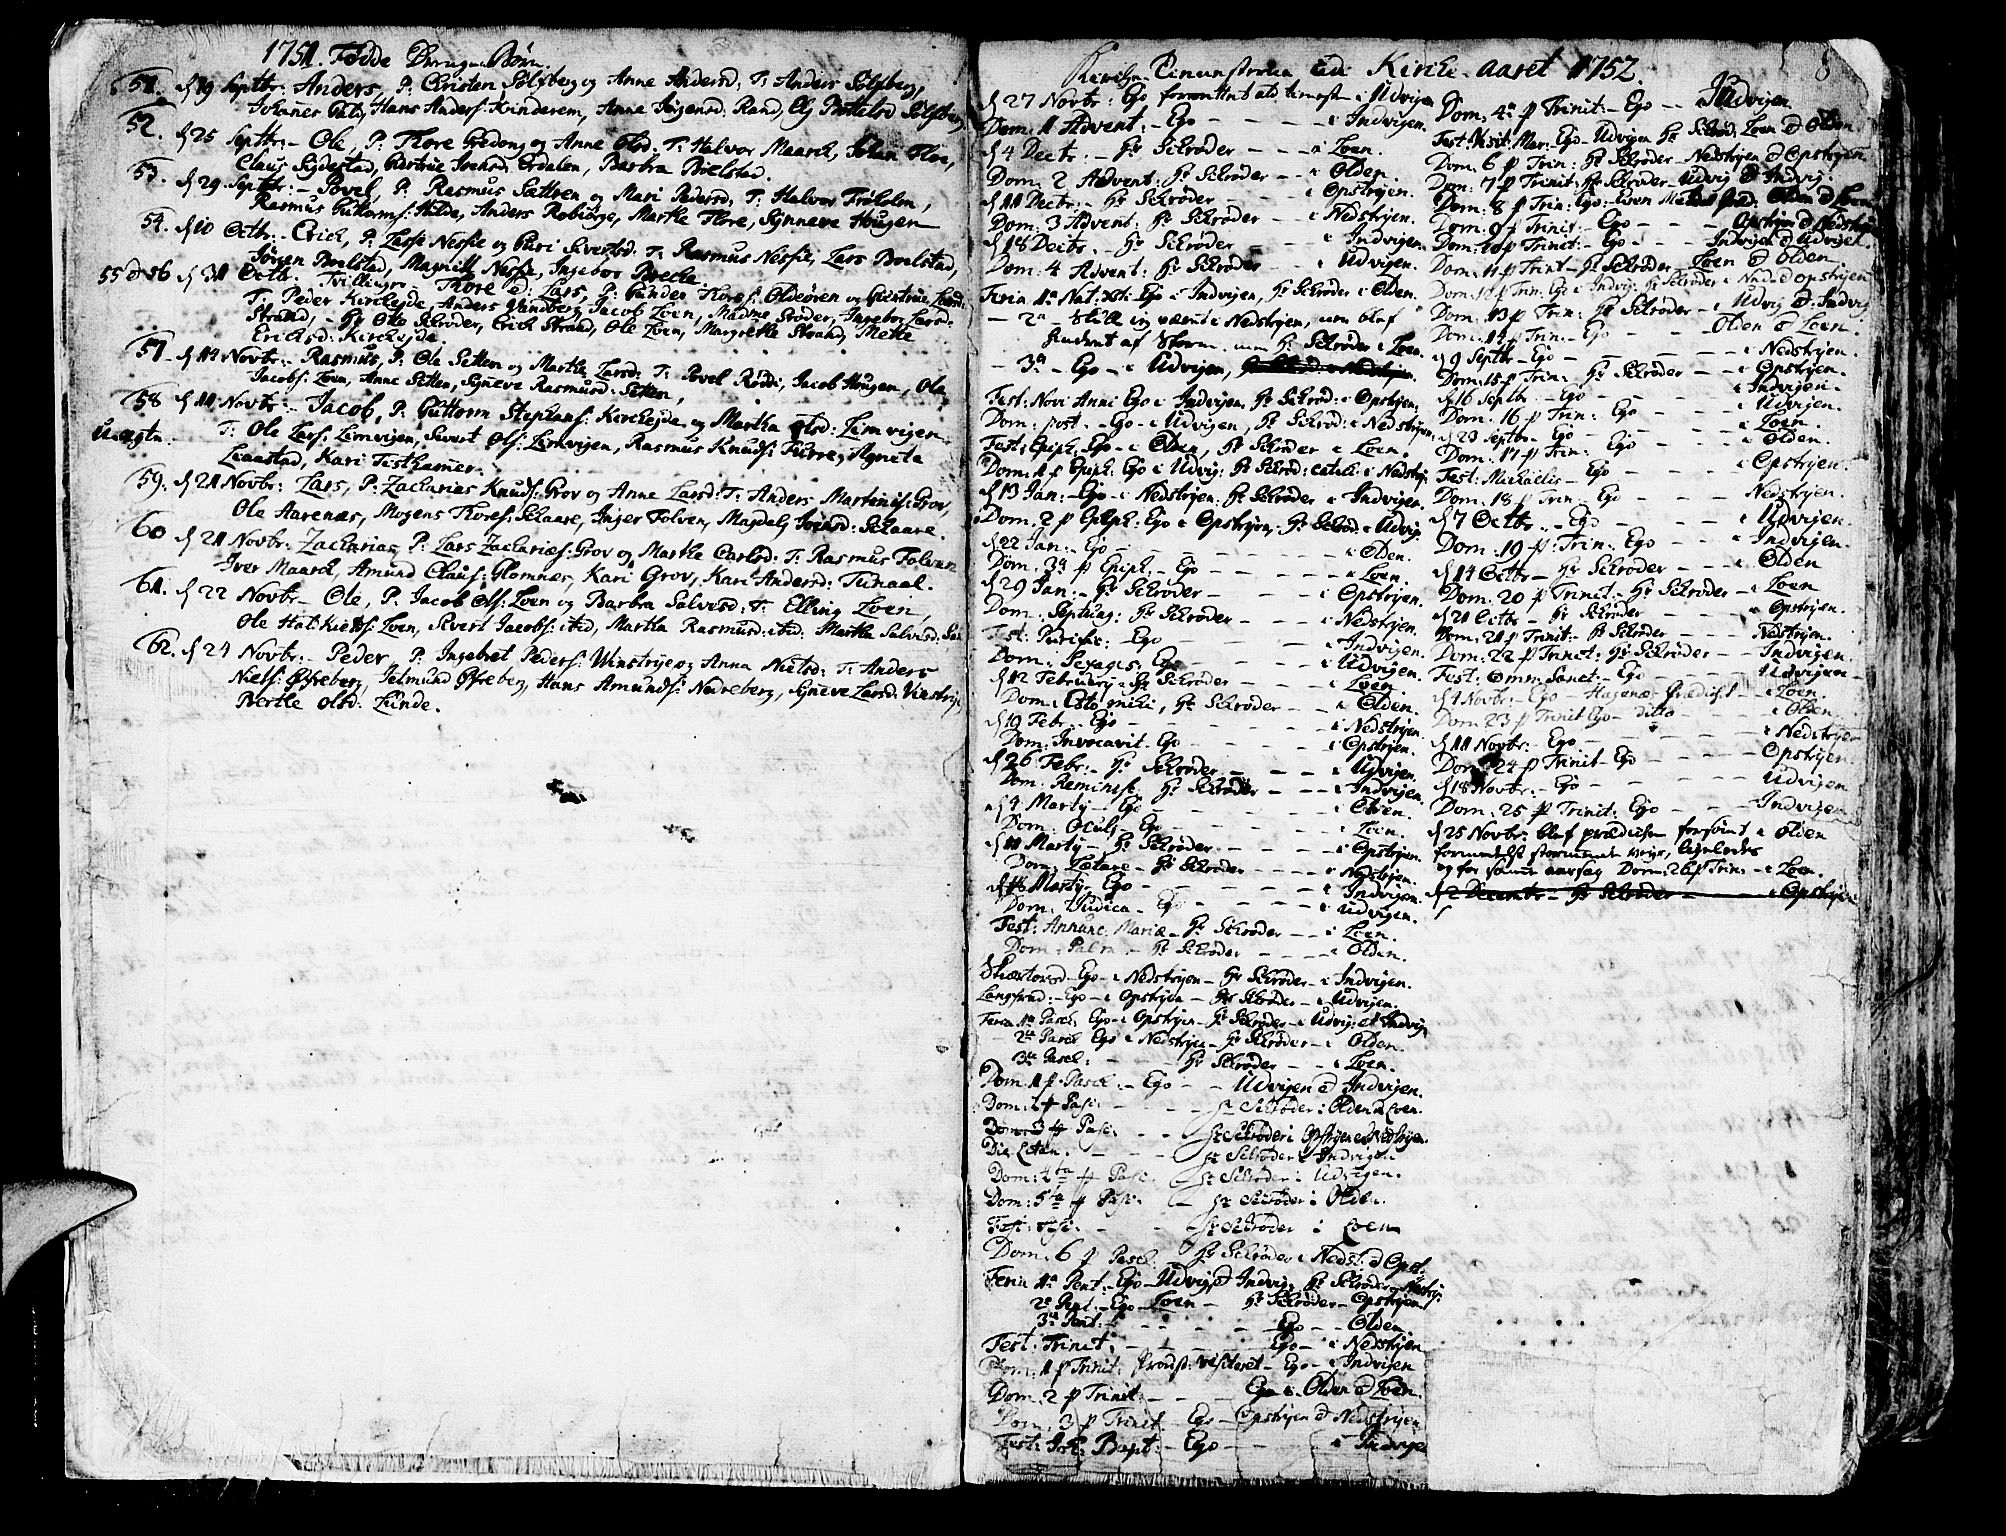 1751. Fødde Drenge Børn.
51. d 19 Septbr: Anders, P: Christen Solsberg og Anne Andersd: T: Anders Solsberg,
Johannes Hans Anders: Anne Rand, Solsberg
52. d 25 Septbr:- Ole, P: Thore og Anne Olsd: T: Halvor Maarck, Johan Floe,
Claus Sigdestad, Giertrue Erdalen, Barbra Brelstad.
53. d 29 Septbr:- Povel, P: Rasmus Sætten og Mari Pedersd: T: Halvor
Rasmus Guttorms: Hilde, Anders Robiørge, Marthe Flore, Synneve Hougen
54. d 10 Octbr.- Erich, P: Lasse Nesse og Guri Siversd: T: Rasmus Nesse, Lars Brelstad,
Jørgen Brelstad, Magnild Nesse, Ingebor Brecke.
55 & 56 d 31 Octb: Tvillinger Thore & Lars, P: Gunder Thores: Oldeøren og Giertrue Larsd:
T: Peder Kirckeyde Anders Jacob Loen, Madme Ingebor Larsd:
Strand, - Hr Ole Schrøder, Erich Strand, Ole Loen, Margrethe Strand, Mette
Ericksd: Kirckeyde.
57. d 14 Novbr:- Rasmus, P: Ole Setten og Marthe Larsd: T: Povel Rødi, Jacob Hougen, Ole
Jacobs: Loen, Anne Setten, Synneve Rasmusd: Setten,
58 d 11 Novbr:- Jacob, P: Guttorm Stephans: Kirckeyde og Martha Olsd: Lemvigen
Uægte. T: Ole Lars: Lemvigen, Sivert Ols: Lemvigen, Rasmus Knuds: Furre, Agnete
Leaastad, Kari Testhamer.
59. d 21 Novbr: Lars, P: Zacharias Knuds: Grov og Anne Larsd: T: Anders Martinus: Grov,
Ole Aarenæs, Mogens Thores: Skaare, Inger Folven, Magdali Iversd: Skaare.
60 d 21 Novbr: Zacharias, P: Lars Zacharias: Grov og Marthe Carlsd: T: Rasmus Folven
Iver Maarck, Amund Claus: Glomnæs, Kari Grov, Kari Andersd: Tunaal.
61. d 22 Novbr- Ole, P: Jacob Ols: Loen og Barbra Salvesd: T: Elling Loen,
Ole Loen, Sivert Jacobs: itid, Martha Rasmusd: itid: Martha Salvesd:
62. d 24 Novbr:- Peder P: Ingebret Peders: Winstrye og Anna Nielsd: T: Anders
Niels: Øfreberg, Jetmund Øfreberg, Hans Amunds: Nedreberg, Synneve Larsd: Vinstrye
Berthe Olsd: Lunde.
8
Kircke-Aaret 1752.
d 27 Novbr: Ego i Udvigen
Dom: 1 Advent:- Ego - - - i Indvigen.
d 4 Decbr:- Hr Schrøder - - - i Loen.
Dom: 2 Advent: Hr Schrøder - - i Olden.
d 11 Decbr:- Hr Schrøder - - i Opstryen.
Dom: 3 Advent: Hr Schrøder - - i Nedstryen.
d 18 Decbr- Hr Schrøder - - i Indvigen
Dom: 4 Advent: Hr Schrøder - - i Udvigen.
Feria 1a Nat: Xti Ego i Indvigen, Hr Schrøder i Olden.
- 2a i Nedstryen,
af Storm. Hr Schrøder i Loen.
- 3a - Ego - i Udvigen,
Fest: Novi Anni Ego i Indvigen. Hr Schrød: i Opstryen.
Dom: post - Ego - i Udvigen, Hr Schrød: i Nedstryen,
Fest: Epiph: Ego - i Olden, Hr Schrøder i Loen.
Dom: 1 p Epiph: Ego i Udvig: Hr Schrød: i Nedstry:
d 13 Jan: - Ego - i Nedstryen: Hr Schrøder i Indvigen.
Dom: 2 p Epiph: Ego i Opstryen, Hr Schrød: i Udvig:
d 22 Jan: - Ego - - - i Olden.
Dom: 3a p Epiph: - Ego - - - i Loen.
d 29 Jan: - Hr Schrøder - - i Opstryen.
Dom: Septuag: Hr Schrøder - - i Nedstryen.
Fest: Purific: Ego - - i Indvigen.
Dom: Sexages: Ego - - i Udvigen.
d 12 February - Hr Schrøder - - i Loen.
Dom: Esto mihi, Hr Schrøder - - i Olden.
d 19 Febr: Ego - - - i Nedstryen.
Dom: Invocavit- Ego - - i Opstryen.
d 26 Febr:- Hr Schrøder - - i Udvigen.
Dom: Reminisc. Hr Schrøder - - i Indvigen.
d 4 Marty - Ego - - - i Olden.
Dom: Oculi Ego - - - i Loen.
d 11 Marty - Hr Schrøder - - i Opstryen.
Dom: Lætare - Hr Schrøder - - i Nedstryen.
d 16 Marty Ego - - - i Indvigen
Dom: Judica - Ego - - i Udvigen.
Fest: Annunc: Mariæ - Hr Schrøder - - i Loen.
Dom: Palm - Hr Schrøder - - i Olden.
Skiærtorsd- Ego - i Nedstryen - Hr Schrøder - i Indvigen.
Langfred:- Ego - i Opstryen - Hr Schrøder - i Udvigen.
Feria 1a Pasch: Ego - i Opstryen - Hr Schrøder - i Udvig: et Indvig:
2a Pasch Ego i Nedstryen - Hr Schrøder - i Olden.
3a Pasch: - - Hr Schrøder - i Loen.
Dom: 1 p Pasch: - Ego - - Udvigen & Indvigen.
Dom: 2 p Pasc: - - - Hr Schrøder i Olden & Loen.
Dom: 3 p Pasc: - - Hr Schrøder i Opstryen & Nedstryen.
Die - - - Hr Schrøder i Indvigen
Dom: 4ta p Pasc. Hr Schrøder i Udvigen.
Dom: 5ta p Pasc. Hr Schrøder i Olden.
Fest: - - Hr Schrøder i Loen
Dom: 6 p Pasch: Hr Schrøder i Nedst: & Opst.
Feria 1a Pent:- Ego - Udvig & Indvig: Hr Schrøder - Nedstry:
2a Pent: - Ego - Loen - Hr Schrøder - Opstryen
3a Pent: - - - Ego - - Olden
Fest: Trinit: - - - Ego - i Nedstryen
Dom: 1 p Trinit: Provst: visiteret - Ego - i Indvigen
Dom: 2 p Trinit: - - - Ego i Olden & Loen
Dom: 3 p Trinit - Ego - Opstryen & Nedstryen
Fest: Joh: Bapt:- Ego - - i Indvigen
Dom: 4a p Trinit:- Ego - - Udvigen
Fest: Visit: Mar: Ego - Udvigen Hr Schrød: Loen & Olden
Dom: 6 p Trin: Hr Schrøder - Nedstryen & Opstryen
Dom: 7 p Trinit: Hr Schrøder - Udvig & Indvig:
Dom: 8 p Trin: Ego: Olden & Loen
Dom: 9 p Trinit: - Ego - - Opstryen & Nedstryen
Dom: 10 p Trinit: - Ego - - Indvigen & Udvigen.
Dom: 11 p Trinit - Hr Schrøder - Loen & Olden
Dom: 12 p Trin: Ego i Indvig: Hr Schrøder i Neds & Opstryen
Dom: 13 p Trin: Hr Schrøder - i Udvig & Indvig
Dom: 14 p Trin: - Ego - - Olden & Loen.
d 9 Septbr - Ego - - - i Nedstryen.
Dom: 15 p Trin: Hr Schrøder - - i Opstryen.
d 16 Septbr - Ego - - - i Indvigen.
Dom: 16 p Trin: Ego - - - i Udvigen.
d 23 Septbr - Ego - - - i Loen.
Dom: 17 p Trin: Ego - - - i Olden.
Fest: Michaelis - Ego - - - i Opstryen.
Dom: 18 p Trin - Ego - - - Nedstryen.
d 7 Octbr: - Ego - - - i Udvigen.
Dom: 19 p: Trin: Ego - - - i Indvigen.
d 14 Octbr - Hr Schrøder - - i Olden
Dom: 20 p Trinit: - Hr Schrøder - i Loen
d 21 Octbr - Hr Schrøder - - i Opstryen.
Dom: 21 p Trinit: Hr Schrøder - - Nedstryen.
Dom: 22 p Trinit: Hr Schrøder - - Indvigen.
Fest: Omn: Sanct: - Ego - - - Udvigen -
d 4 Novbr: - Ego - Hagenæs - i Loen.
Dom: 23 p Trinit Ego - ditto - - i Olden
d 11 Novbr: Ego - - - i Nedstryen
Dom: 24 p Trinit - Ego - - Opstryen.
d 18 Novbr: - Ego - - - Udvigen
Dom: 25 p Trinit: Ego - - - Indvigen
d 25 Novbr: blef prædiken forsømt i Olden
formedelst stormende veyr, ligeledes
og for samme aarsag Dom: 26 p Trin: - i Loen.
d 2 Decembr - Hr Schrøder - - i Opstryen